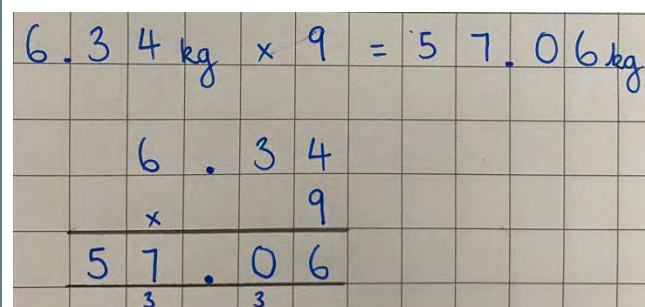 6.34 kg × 9 = 57.06 kg
6.34
× 9
57.06
3 3